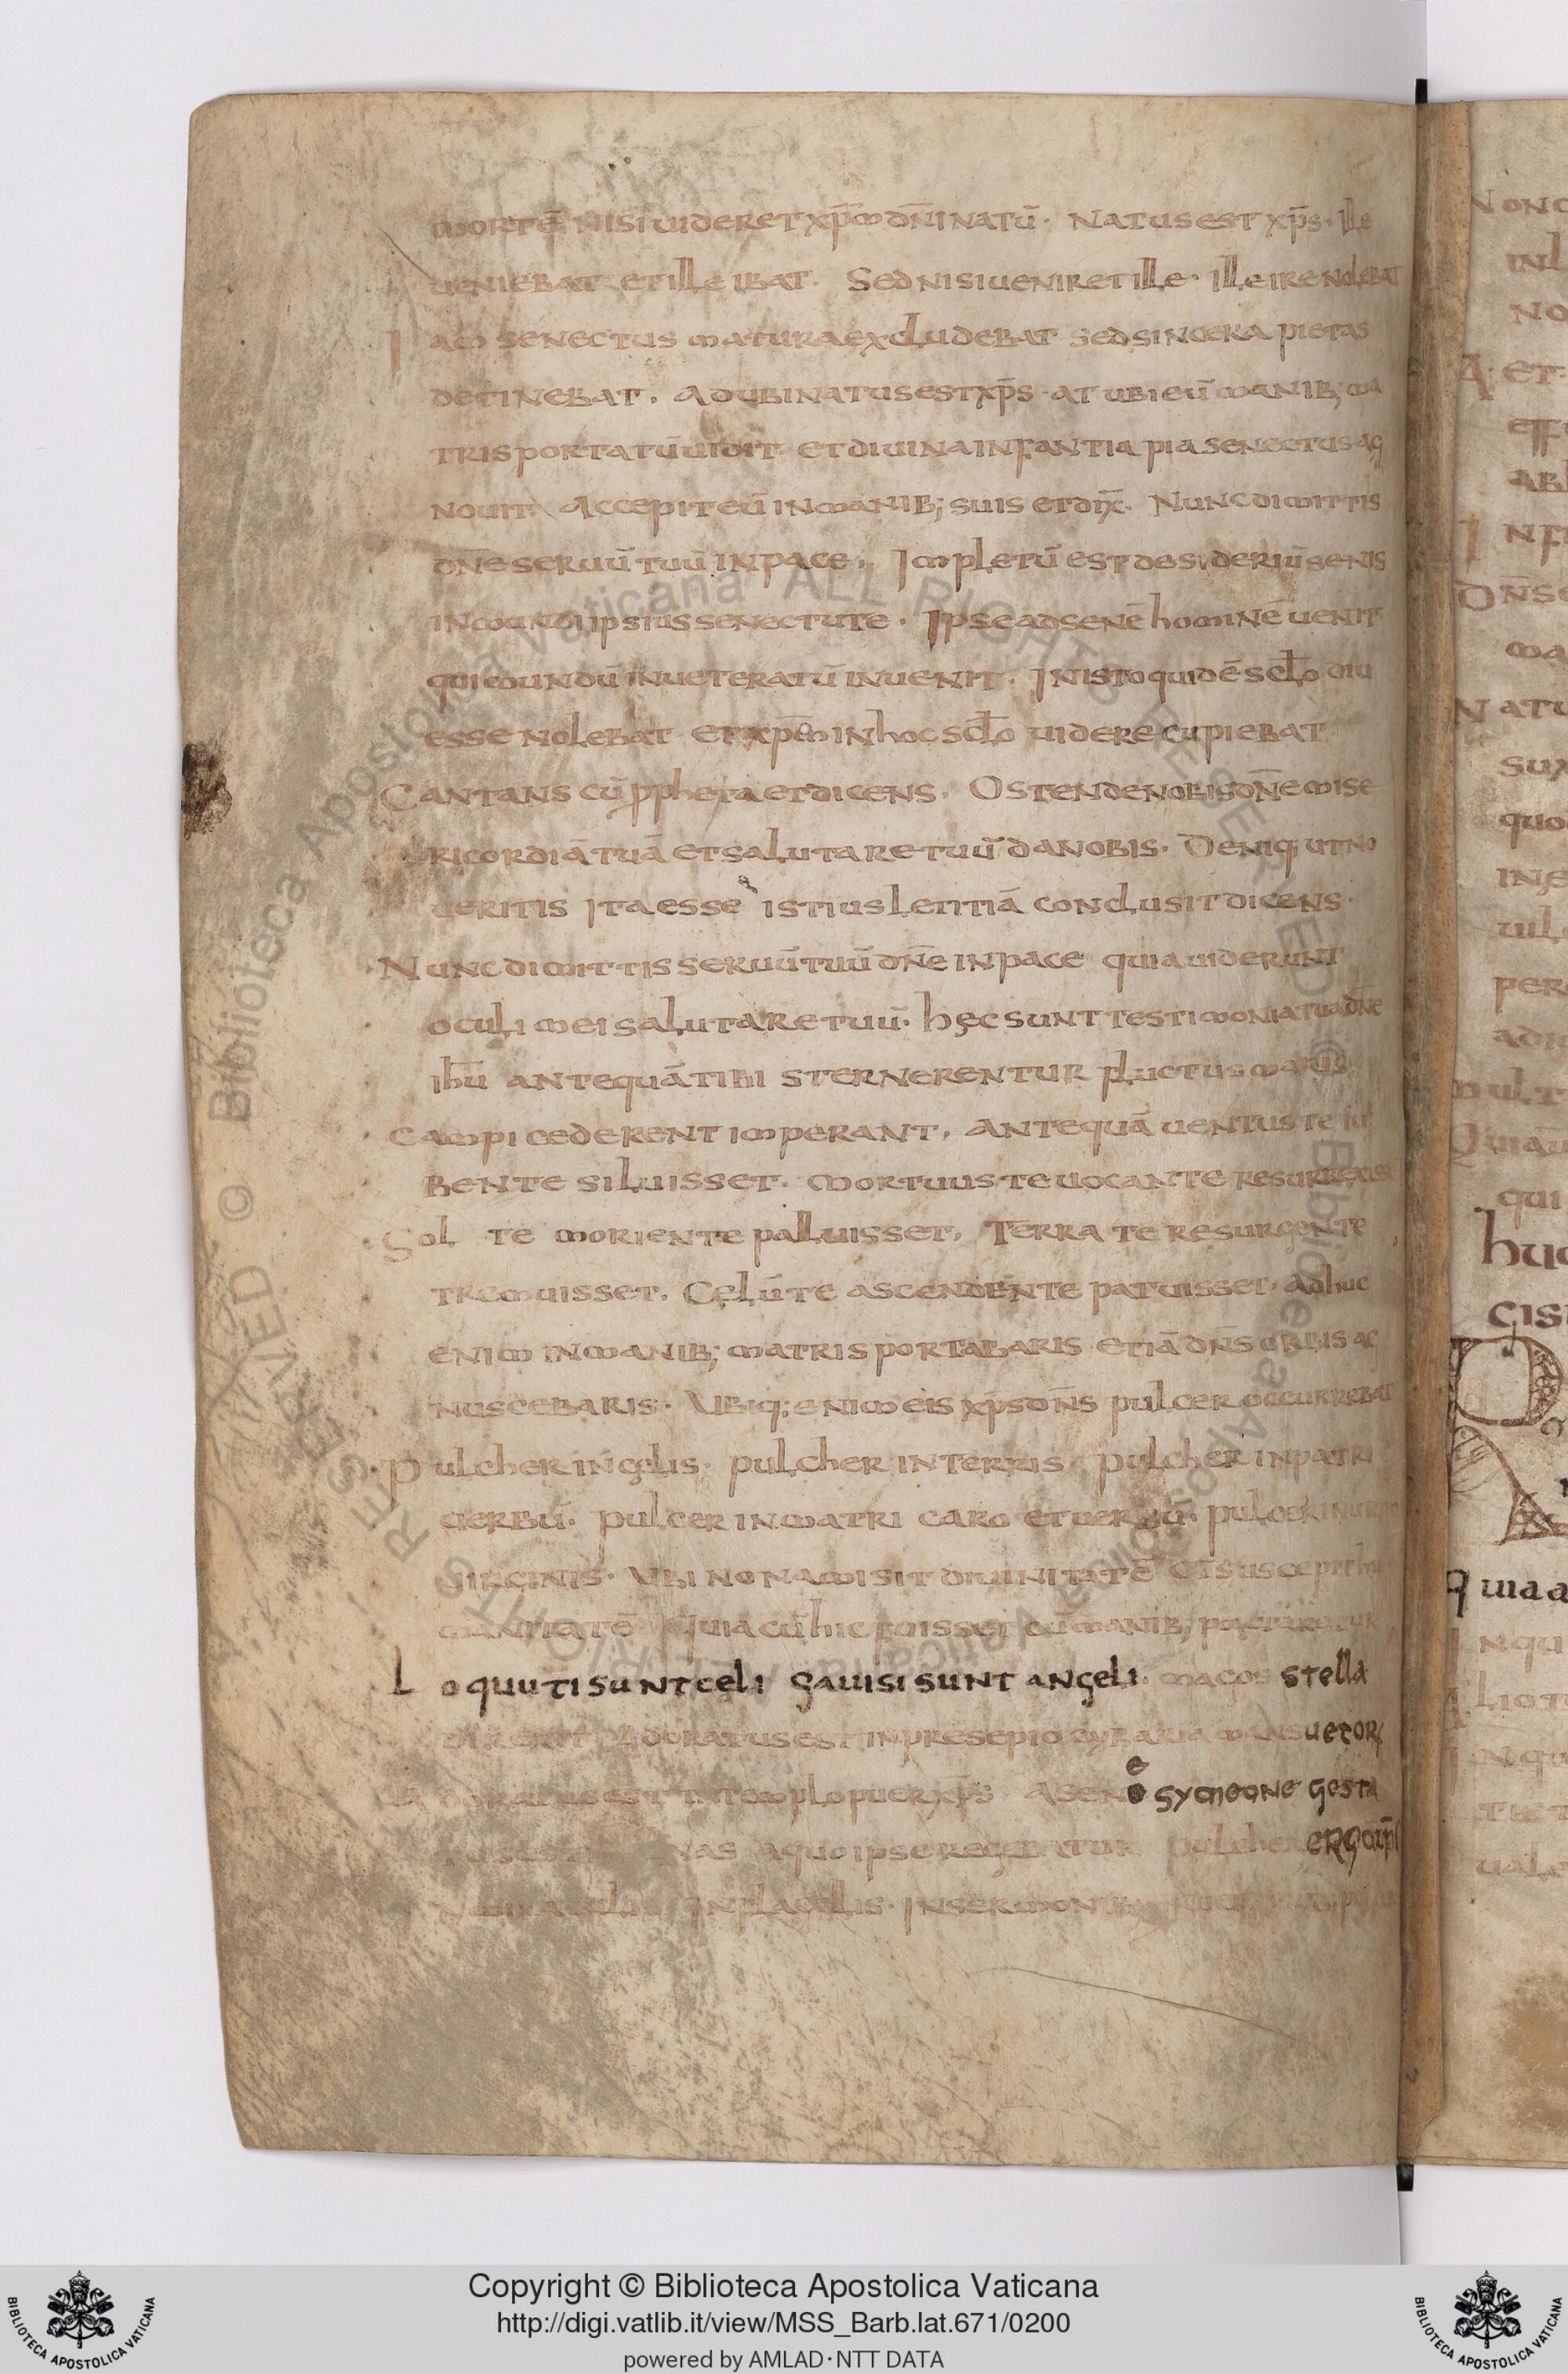 mortē nisi uideret xp̄m dn̄i natū· Natus est xp̄s· ille
ueniebat et ille ibat· Sed nisi ueniret ille· ille ire nolebat
Iam senectus matura excludebat sed sincera pietas
detinebat, Ad ubi natus est xp̄s· at ubi eū manib; ma
tris portatū uidit et diuina infantia pia senectus ag
nouit· Accepit eū in manib; suis et dix̄· Nunc dimittis
dn̄e seruū tuū in pace, Impletū est desideriū senis
in mundi ipsius senectute· Ipse ad senē hominē uenit
qui mundū inueteratū inuenit· In isto quidē scl̄o diu
esse nolebat et xp̄m in hoc scl̄o uidere cupiebat
Cantans cū ppheta et dicens· Ostende nobis dn̄e mise
ricordiā tuā et salutare tuū da nobis· Deniq; ut no
ueritis ita esse istius letitiā conclusit dicens·
Nunc dimittis seruū tuū dn̄e in pace quia uiderunt
oculi mei salutare tuū· hęc sunt testimonia tua dn̄e
ih̄u antequā tibi sternerentur fluctus maris
campi cederent imperant, antequā uentus te iu
bente siluisset· mortuus te uocante resurrexisset
Sol te moriente palluisset, Terra te resurgente
tremuisset, Cęlū te ascendente patuisset· Adhuc
enim in manib; matris portabaris etiā dn̄s orbis ag
nuscebaris· Ubiq; enim eis xp̄s dn̄s pulcer occurrebat
Pulcher in cęlis· pulcher in terris· pulcher in patri
uerbū· pulcer in matri caro et uerbū· pulcer in
uirginis· Ubi non amisit diuinitatē et suscepit hu
manitatē quia cū hic fuisset cū manib; portaretur
Loquuti sunt celi gauisi sunt angeli· magos stella
direxit Adoratus est in presepio cybaria mansuetorȝ
Adoratus est in templo puer xp̄s· a sene symeone gesta
nas a quo ipse regebatur pulcher ergo
in flagellis· in
Biblioteca Apostolica Vaticana ALL RIGHTS RESERVED © Biblioteca Apostolica Vaticana ALL RIGHTS RESERVED ©
Copyright © Biblioteca Apostolica Vaticana
http://digi.vatlib.it/view/MSS_Barb.lat.671/0200
powered by AMLAD·NTT DATA
BIBLIOTECA APOSTOLICA VATICANA
BIBLIOTECA APOSTOLICA VATICANA